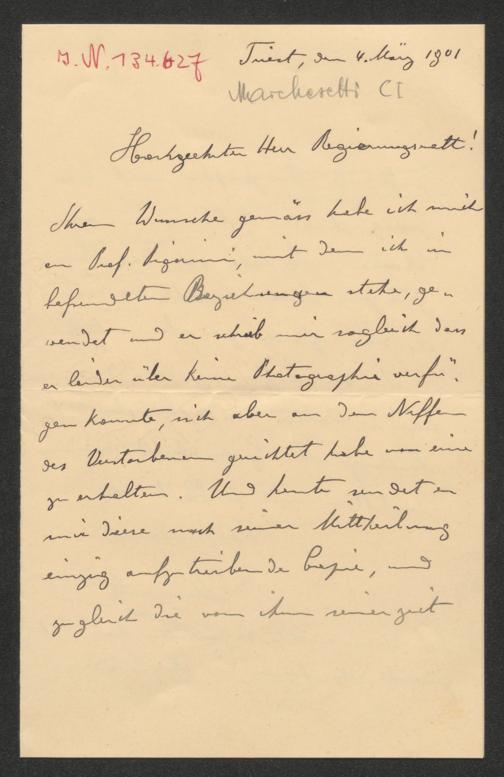 I. N. 134.627
Triest, den 4. März 1901
Marchesetti C I
Hochgeehrter Herr Regierungsrath!
Ihrem Wunsche gemäss habe ich mich
an Prof. Pigorini, mit dem ich in
befreundeten Beziehungen stehe, ge„
wendet und er schrieb mir sogleich dass
er leider über keine Photographie verfü„
gen konnte, sich aber an den Neffen
des Verstorbenen gerichtet habe um eine
zu erhalten. Und heute sendet er
mir diese nach seiner Mittheilung
einzig aufzutreibende Copie, und
zugleich die von ihm seinerzeit